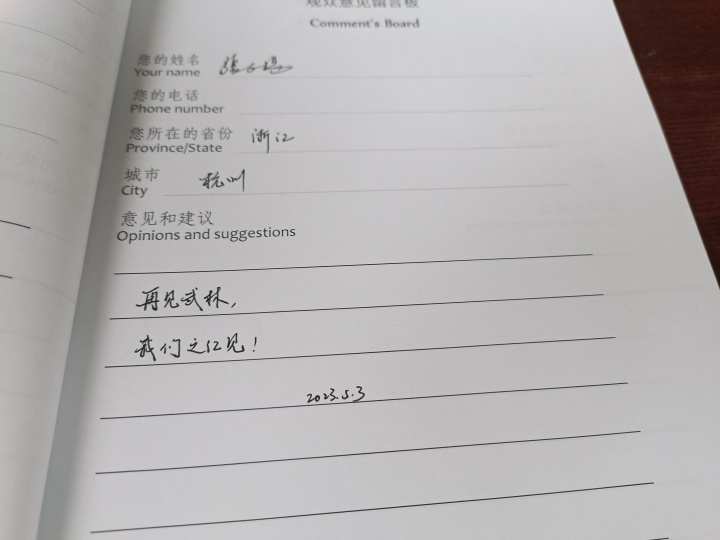 观众意见留言板
Comment's Board
您的姓名
Your name
您的电话
Phone number
您所在的省份 浙江
Province/State
城市 杭州
City
意见和建议
Opinions and suggestions
再见武林,
我们之江见!
2023.5.3